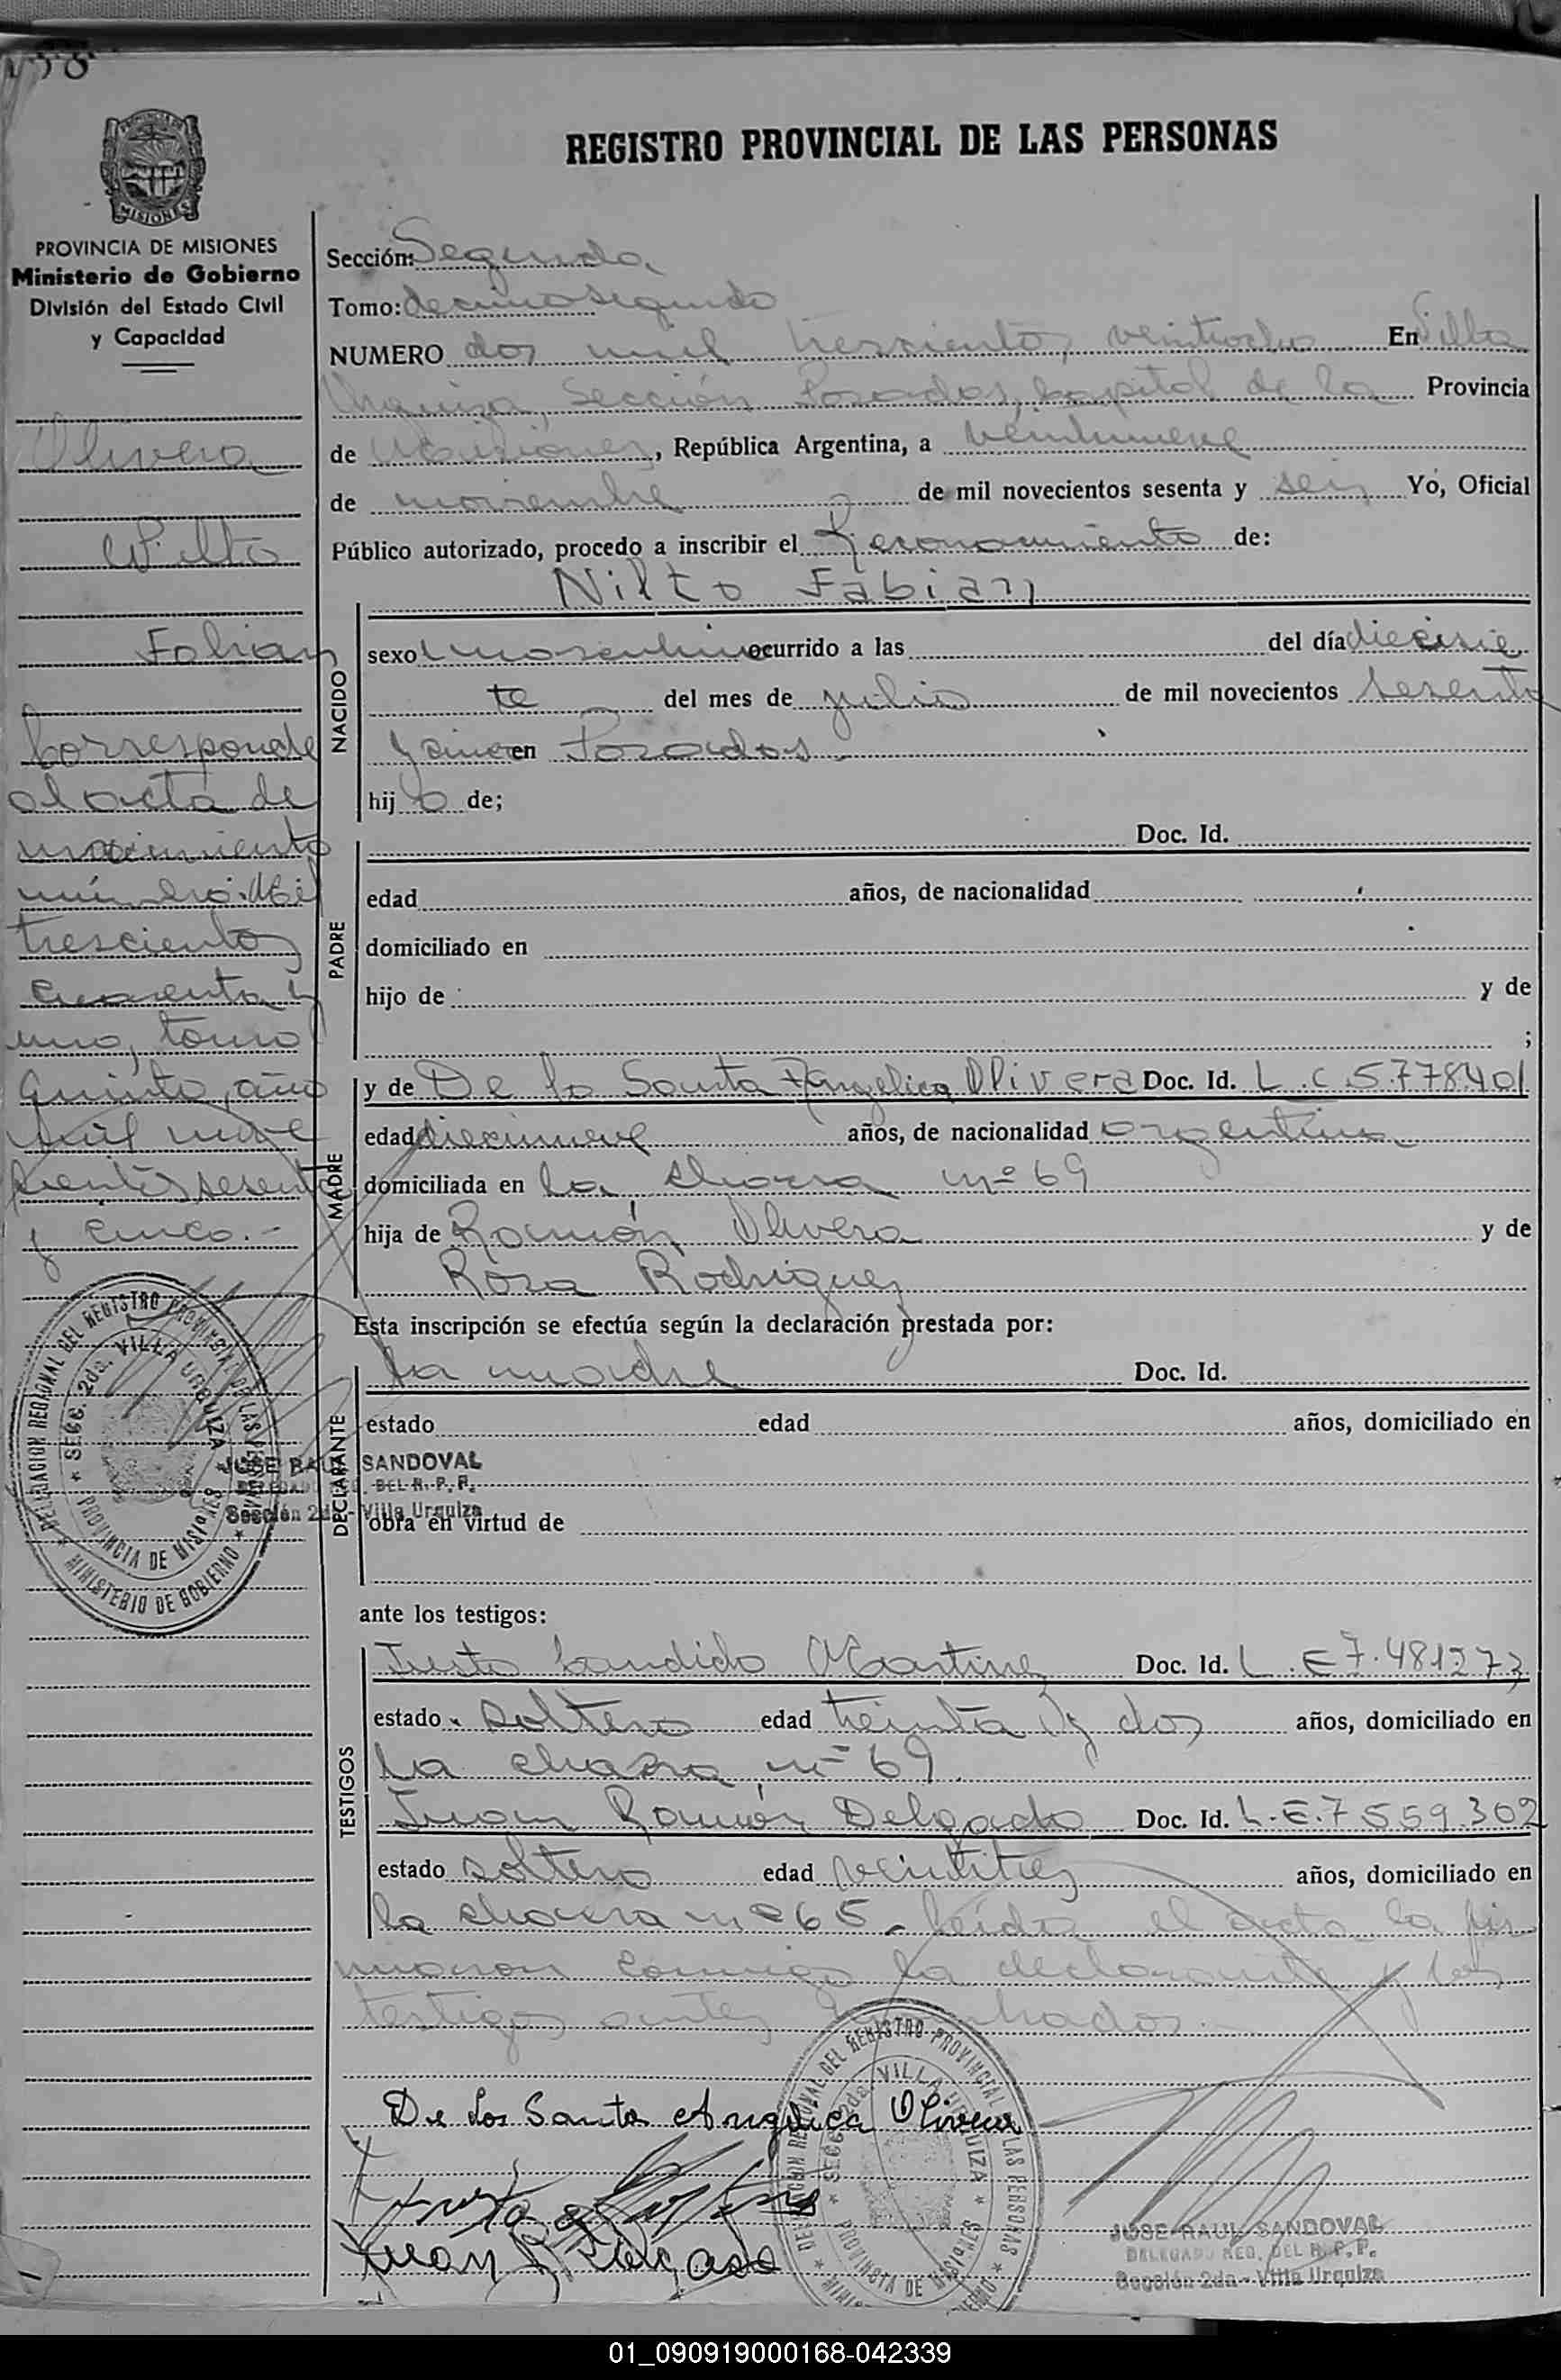 REGISTRO PROVINCIAL DE LAS PERSONAS
MISIONES
PROVINCIA DE MISIONES
Ministerio de Gobierno
División del Estado Civil
y Capacidad
Olivera
Nilto
Fabian
Corresponde
al acta de
nacimiento
número: Mil
trescientos
cuarenta y
uno, tomo
Quinto, año
mil nove
cientos sesenta
y cinco.-
DELEGACION REGIONAL DEL REGISTRO PROVINCIAL DE LAS PERSONAS
* SECC. 2da. VILLA URQUIZA *
PROVINCIA DE MISIONES
* MINISTERIO DE GOBIERNO *
JOSE RAUL SANDOVAL
DELEGADO REG. DEL R. P. P.
Sección 2da - Villa Urquiza
Sección: Segunda
Tomo: decimosegundo
NUMERO dos mil trescientos veintiocho En Villa
Urquiza, Sección Posadas, capital de la Provincia
de Misiones, República Argentina, a veintinueve
de noviembre de mil novecientos sesenta y seis Yo, Oficial
Público autorizado, procedo a inscribir el Reconocimiento de:
Nilto Fabian
NACIDO
sexo masculino ocurrido a las del día diecisie
te del mes de julio de mil novecientos sesenta
y cinco en Posadas
hij o de;
PADRE
Doc. Id.
edad años, de nacionalidad
domiciliado en
hijo de y de
;
MADRE
y de De los Santa Angelica Olivera Doc. Id. L.C.5.778401
edad diecinueve años, de nacionalidad argentina
domiciliada en la chacra nº 69
hija de Ramón Olivera y de
Rosa Rodriguez
Esta inscripción se efectúa según la declaración prestada por:
DECLARANTE
la madre Doc. Id.
estado edad años, domiciliado en
obra en virtud de
ante los testigos:
TESTIGOS
Justo Candido Martinez Doc. Id. L.E 7.481273
estado soltero edad treinta y dos años, domiciliado en
la chacra nº 69
Juan Ramón Delgado Doc. Id. L.E.7559.302
estado soltero edad veintitres años, domiciliado en
la chacra nº 65.- Leída el acta la fir
maron conmigo la declarante y los
testigos antes
De los Santos Angelica Olivera
Juan R Delgado
DELEGACION REGIONAL DEL REGISTRO PROVINCIAL DE LAS PERSONAS
* SECC. 2da. VILLA URQUIZA *
PROVINCIA DE MISIONES
JOSE RAUL SANDOVAL
DELEGADO REG. DEL R. P. P.
Sección 2da - Villa Urquiza
01_090919000168-042339